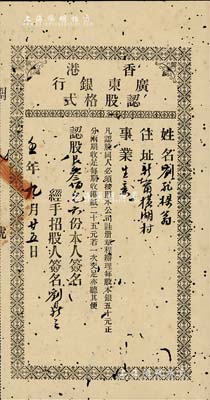 香港
廣東銀行
認股格式
姓名 劉孔楊翁
住址 新蕾 村
事業 生意
凡認股國人必須按照本公司註冊章程辦理每股本銀五十元正
分兩期收足每期收港紙二十五元若一次交足亦聽其便
認股 份 本人簽名
經手招股人簽名 劉
年九月廿五日